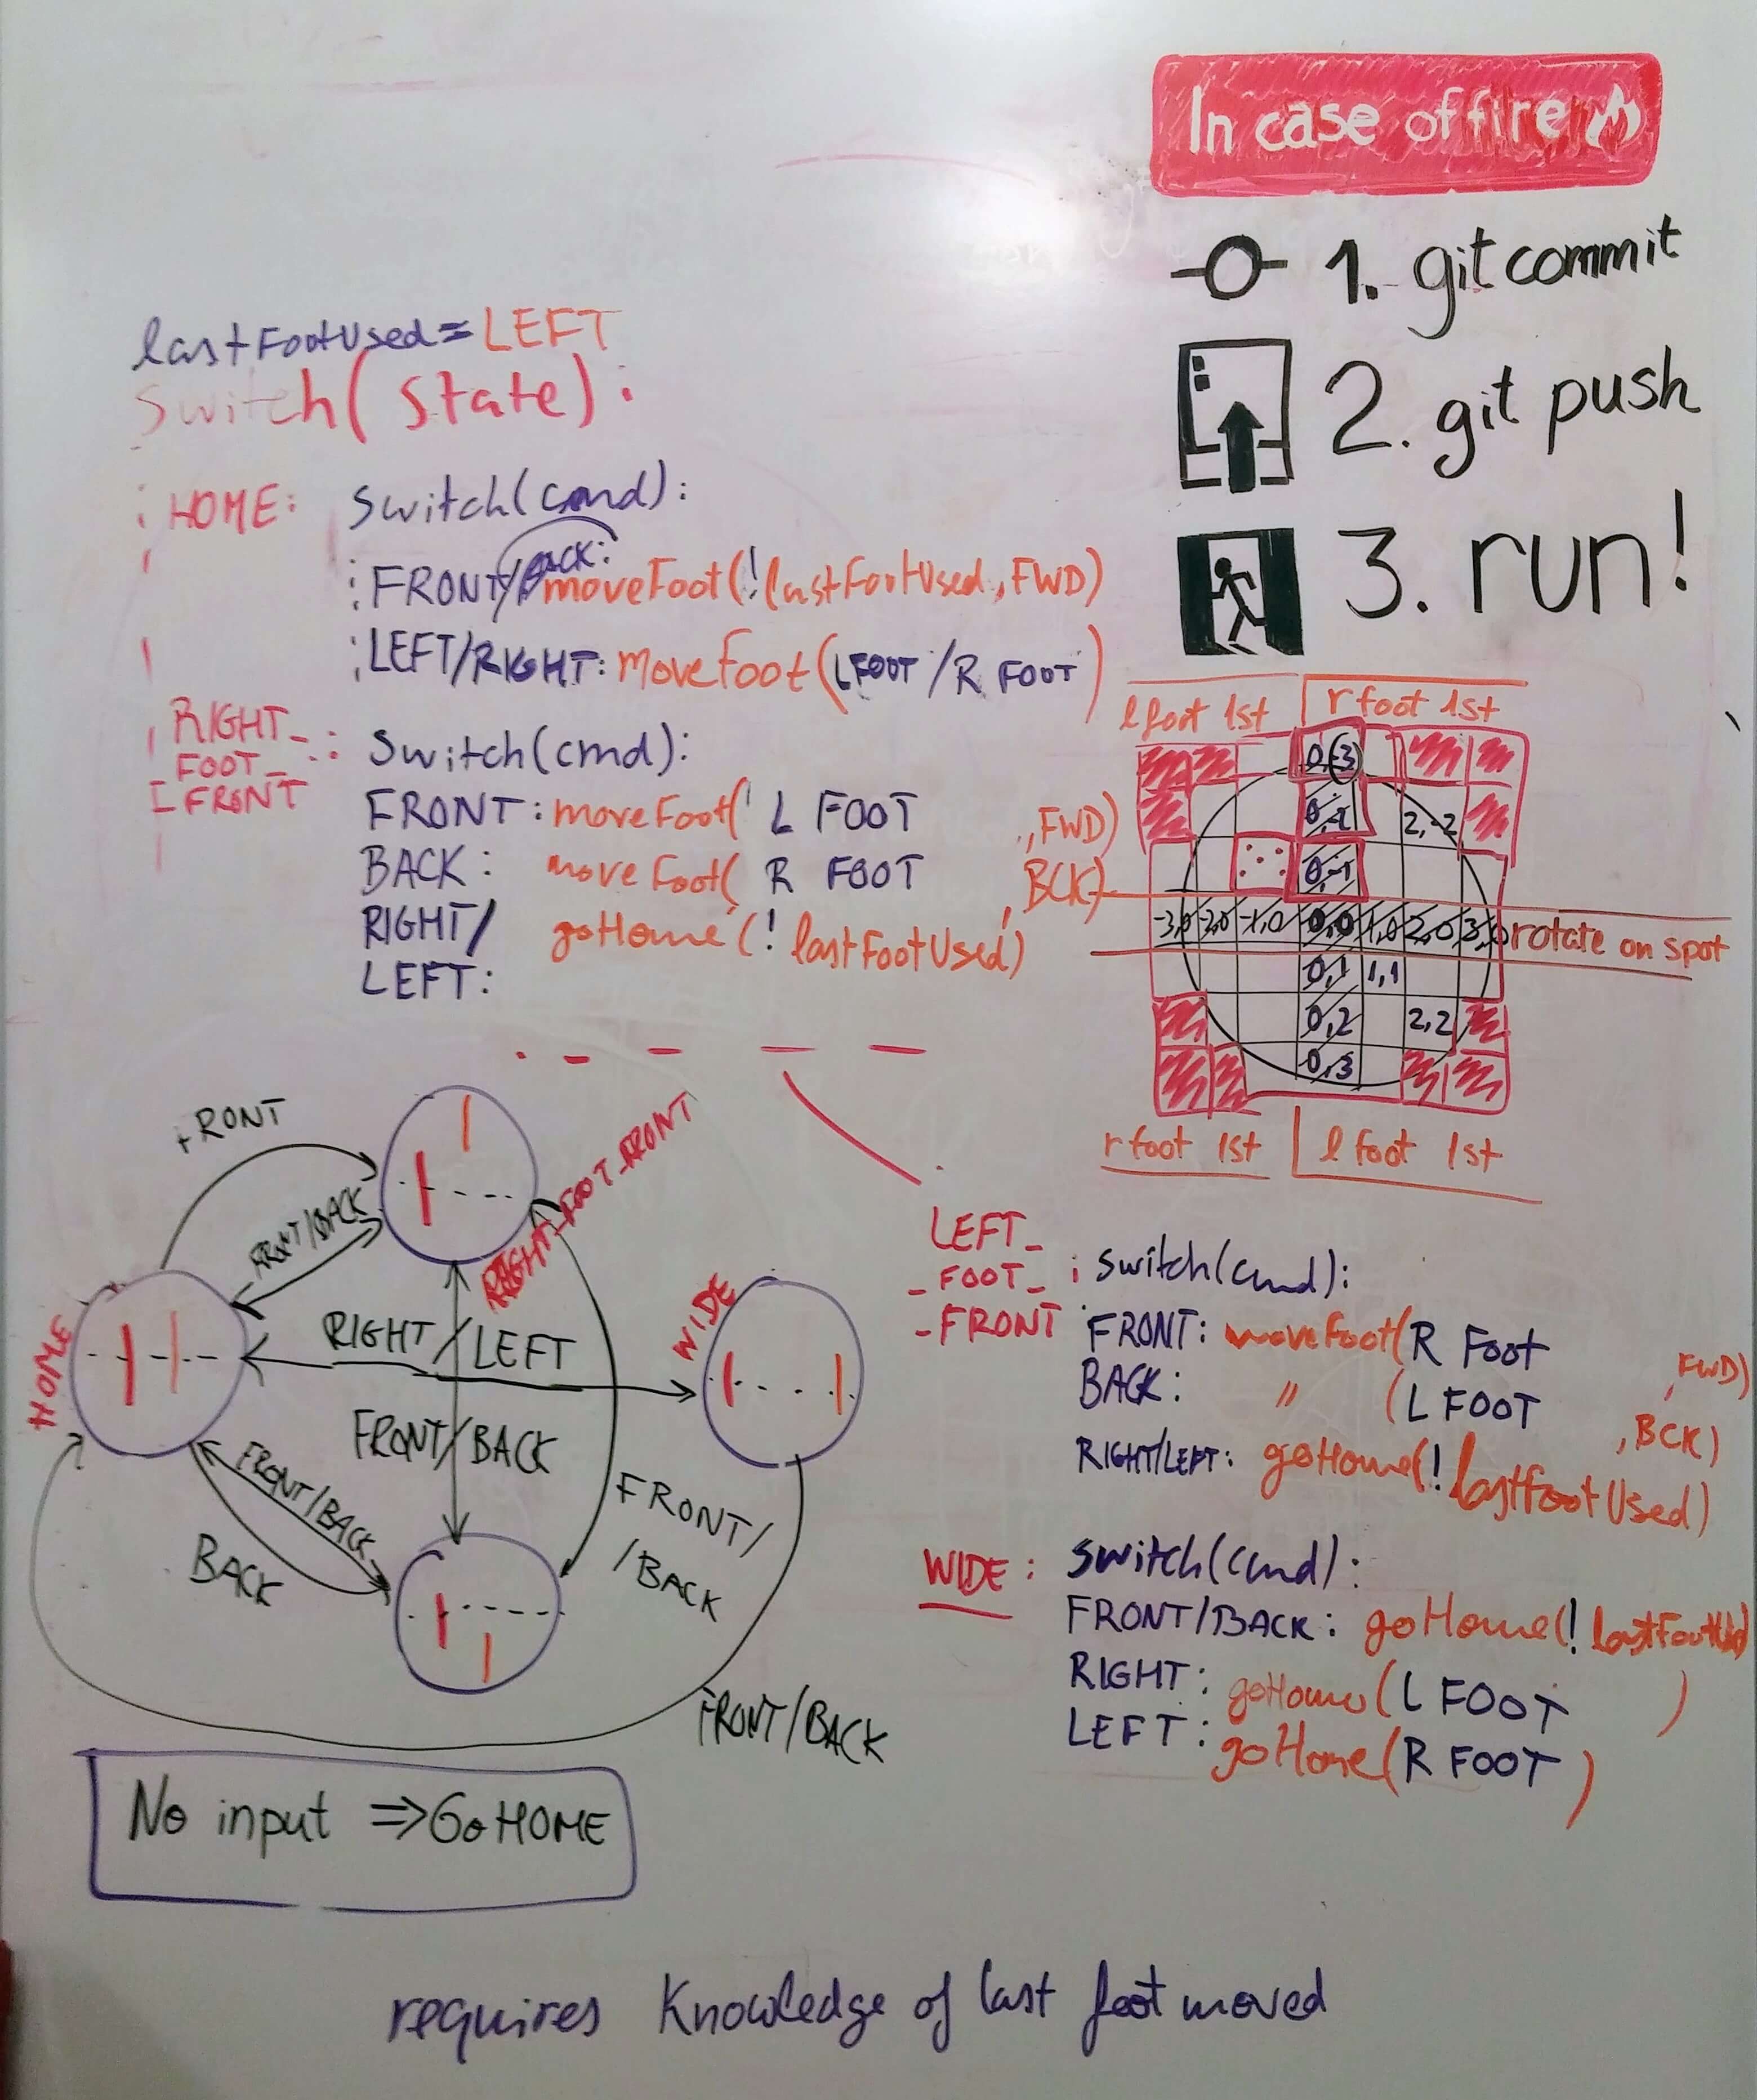 In case of fire
1. git commit
2. git push
3. run!
lastFootUsed = LEFT
Switch( state ) :
HOME: switch(cmd):
FRONT/BACK: moveFoot(!lastFootUsed, FWD)
LEFT/RIGHT: moveFoot(LFOOT / R FOOT)
RIGHT_
_FOOT_ : switch(cmd):
_FRONT
FRONT: moveFoot( L FOOT , FWD)
BACK: moveFoot( R FOOT , BCK)
RIGHT/ goHome (! lastFootUsed)
LEFT:
l foot 1st | r foot 1st
0,-3
0,-2 2,-2
0,-1
-3,0 -2,0 -1,0 0,0 1,0 2,0 3,0 rotate on spot
0,1 1,1
0,2 2,2
0,3
r foot 1st | l foot 1st
FRONT
FRONT/BACK
RIGHT_FOOT_FRONT
HOME
RIGHT/LEFT
WIDE
FRONT/BACK
FRONT/BACK
BACK
FRONT/
/BACK
FRONT/BACK
No input => Go HOME
LEFT_
_FOOT_ : switch(cmd):
_FRONT
FRONT: moveFoot(R Foot , FWD)
BACK: " (L FOOT , BCK)
RIGHT/LEFT: goHome(! lastfootUsed)
WIDE: switch(cmd):
FRONT/BACK: goHome(! lastFootUsd)
RIGHT: goHome(L FOOT )
LEFT: goHome(R FOOT )
requires knowledge of last foot moved